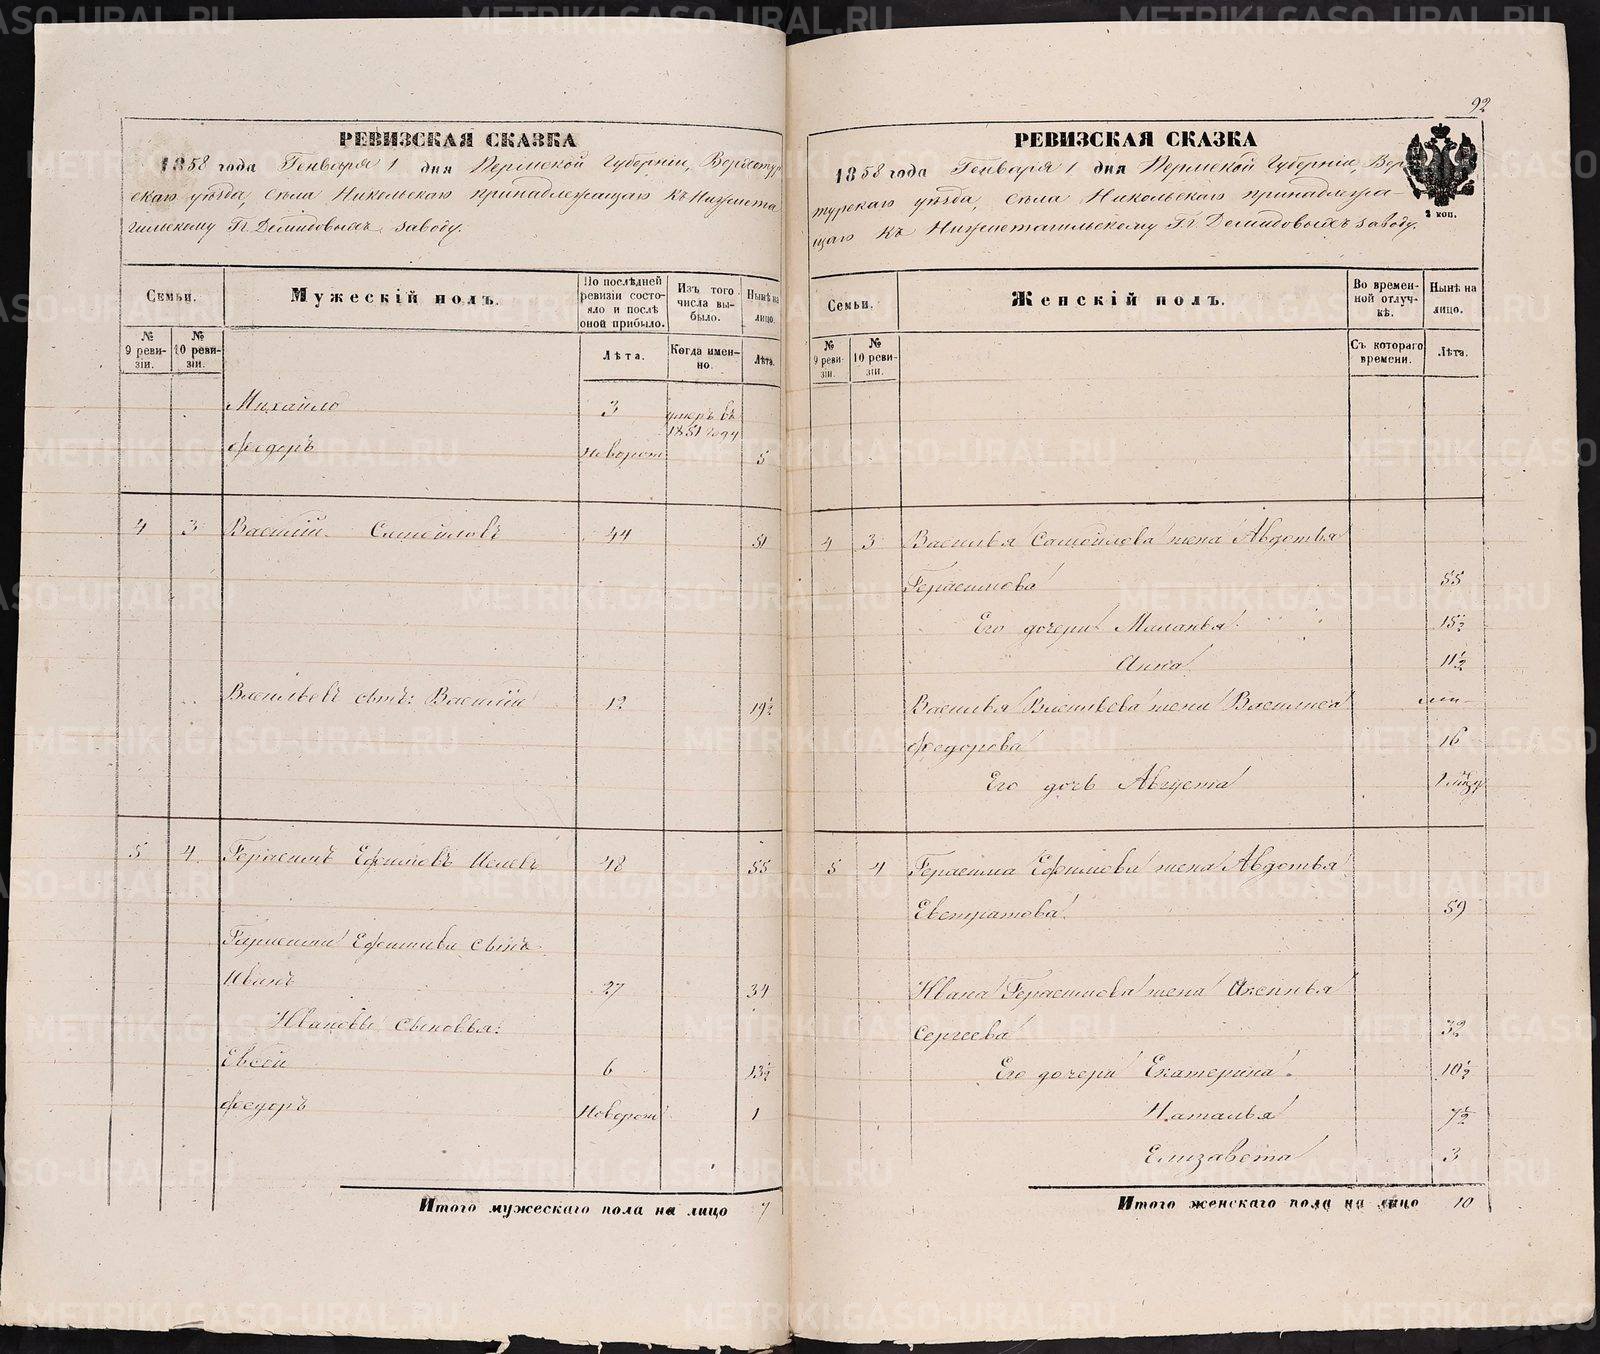 92
РЕВИЗСКАЯ СКАЗКА
1858 года Генваря 1 дня Пермской Губернiи, Верхотур
скаго уѣзда, села Никольскаго принадлежащаго къ Нижнета
гильскому Гг. Демидовыхъ заводу.
Семьи.
Мужескій полъ.
По послѣдней ревизіи состояло и послѣ оной прибыло.
Изъ того числа выбыло.
Нынѣ на лицо.
№ 9 ревизіи.
№ 10 ревизіи.
Лѣта.
Когда именно.
Лѣта.
Михайло 3 умеръ въ 1851 году
Федоръ Новорож 5
4 3 Василій Самойловъ 44 51
Васильевъ сынъ: Василій 12 19½
5 4 Герасимъ Ефимовъ 48 55
Герасима Ефимова сынъ
Иванъ 27 34
Ивановы сыновья:
Евсей 6 13½
Федоръ Новорож 1
Итого мужескаго пола на лицо 7
РЕВИЗСКАЯ СКАЗКА
1858 года Генваря 1 дня Пермской Губернiи, Верхо
турскаго уѣзда, села Никольскаго принадлежа-
щаго къ Нижнетагильскому Гг. Демидовыхъ заводу.
2 коп.
Семьи.
Женскій полъ.
Во временной отлучкѣ.
Нынѣ на лицо.
№ 9 ревизіи.
№ 10 ревизіи.
Съ котораго времени.
Лѣта.
4 3 Василья Самойлова жена Авдотья
Герасимова 55
Его дочери Маланья 15½
Анна 11½
Василья Васильева жена Василиса
Федорова 16
Его дочь Августа
5 4 Герасима Ефимова жена Авдотья
Евстратова 59
Ивана Герасимова жена Аксинья
Сергеева 32
Его дочери Екатерина 10½
Наталья 7½
Елизавета 3
Итого женскаго пола на лицо 10
METRIKI.GASO-URAL.RU